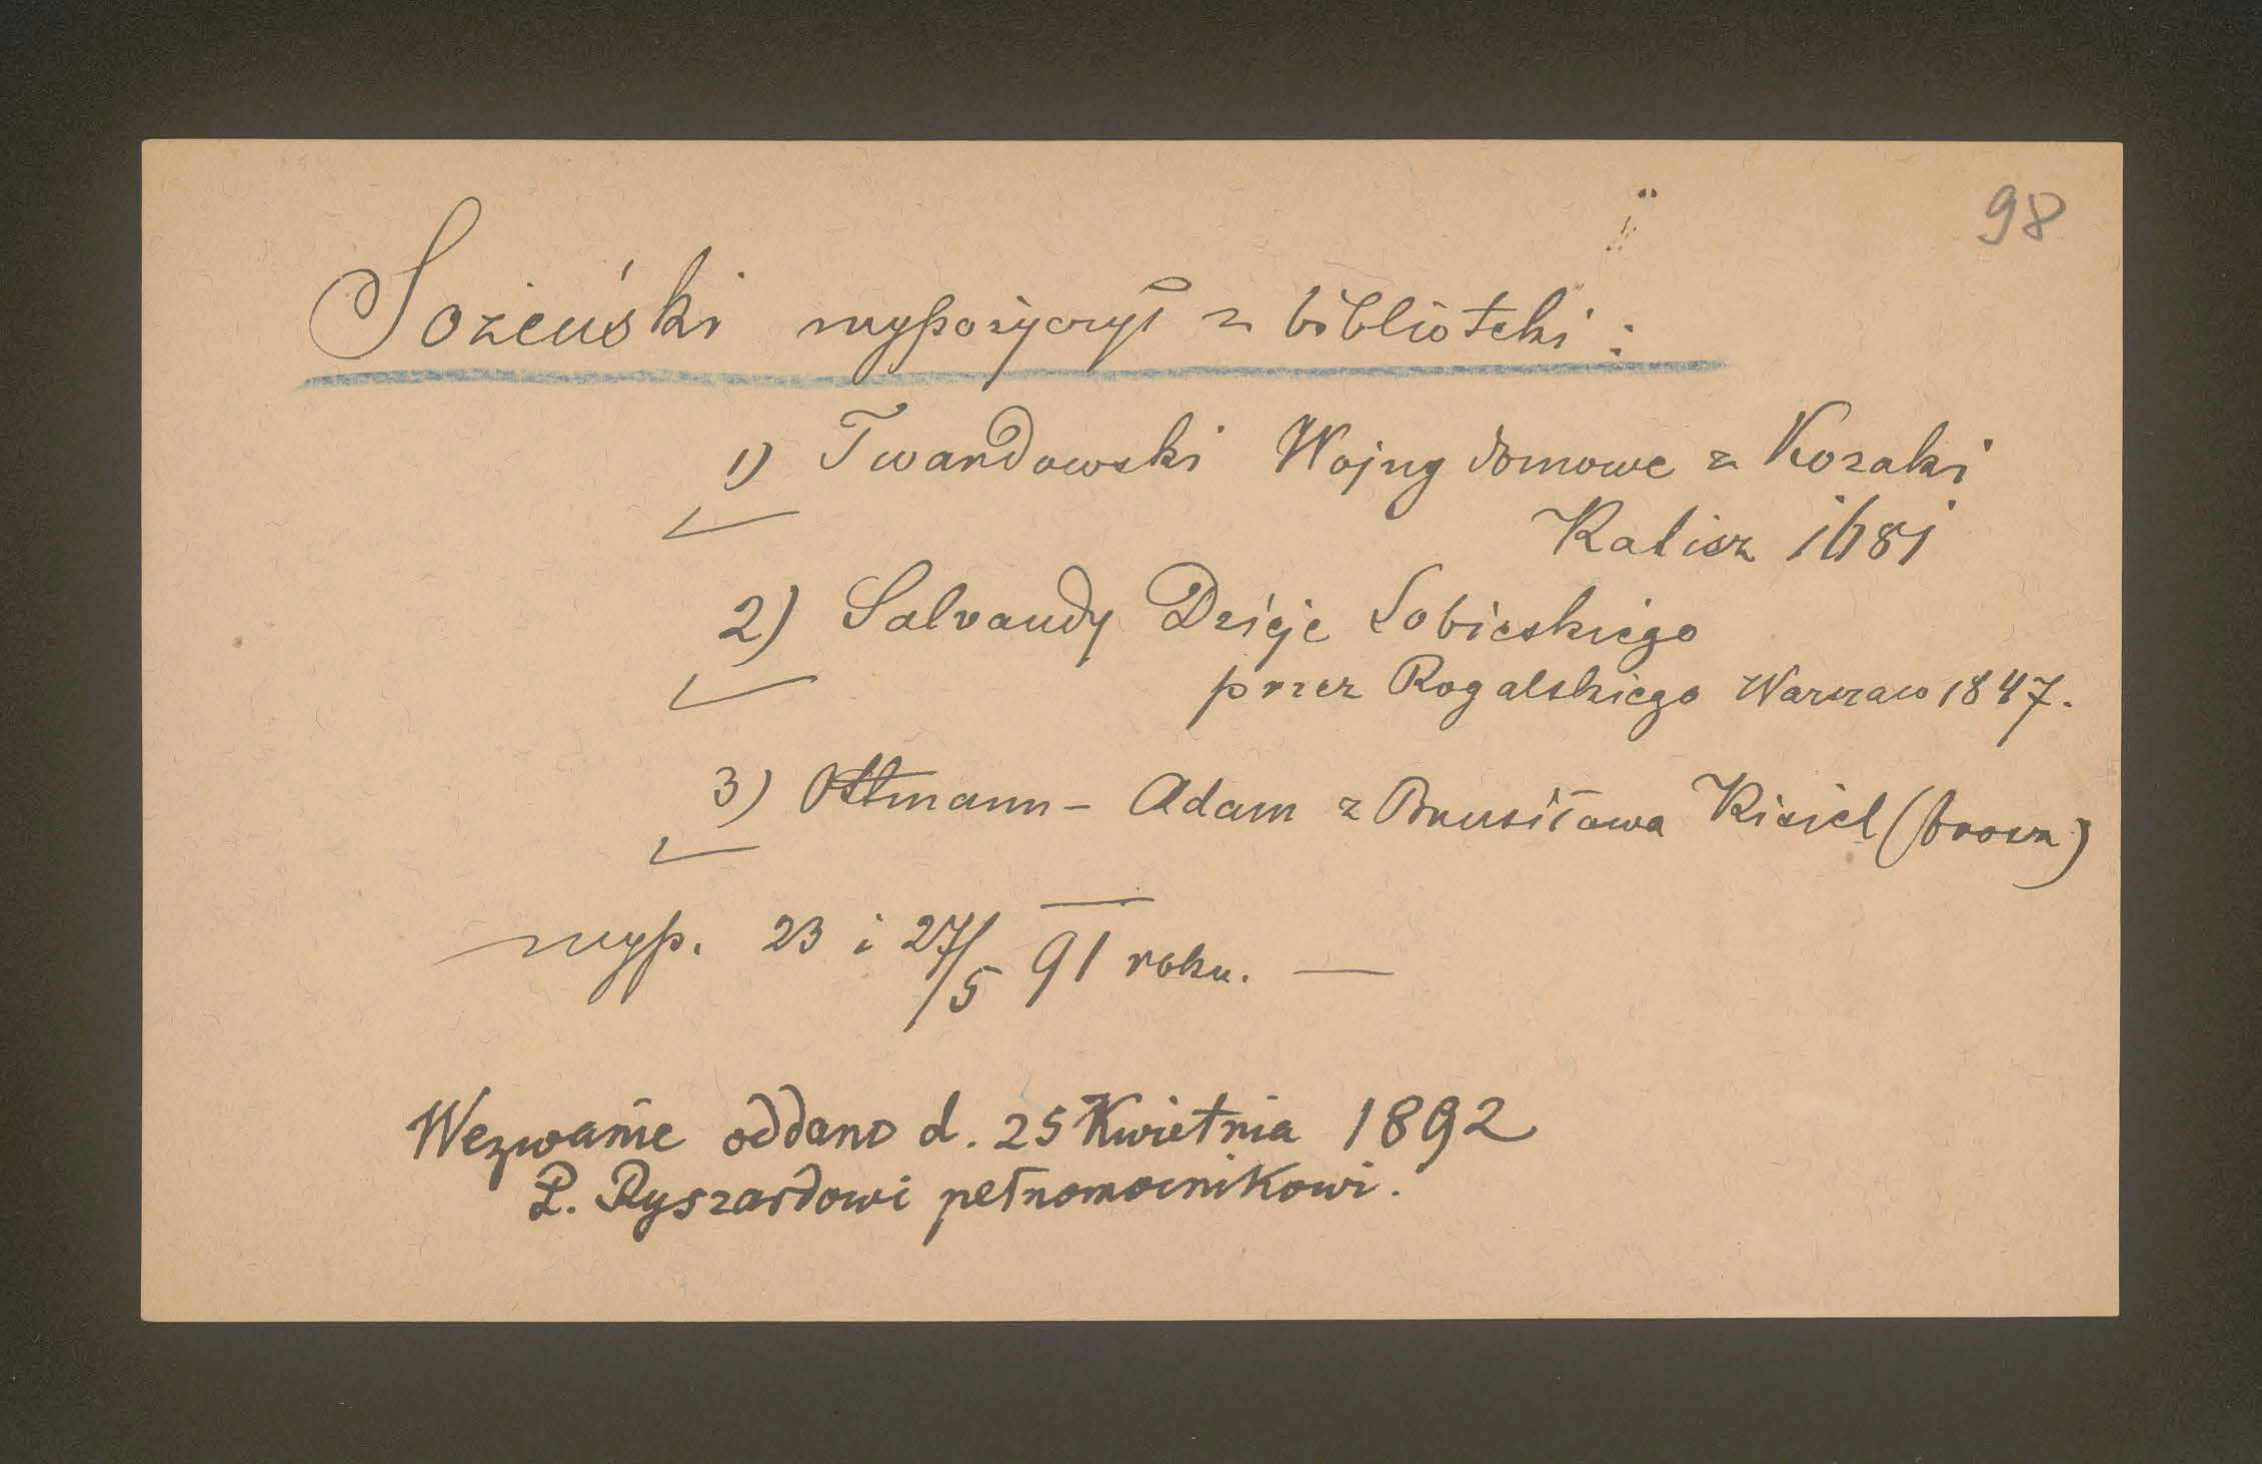 98
Sożeński wypożyczył z biblioteki:
1) Twardowski Wojny domowe z Kozaki
Kalisz 1681
2) Salvandy Dzieje Sobieskiego
przez Rogalskiego Warszaw 1847.
3) Ottmann – Adam z Brusiłowa Kisiel (brosz)
wyp. 23 i 27/5 91 roku. —
Wezwanie oddano d. 25 Kwietnia 1892
P. Ryszardowi pełnomocnikowi.